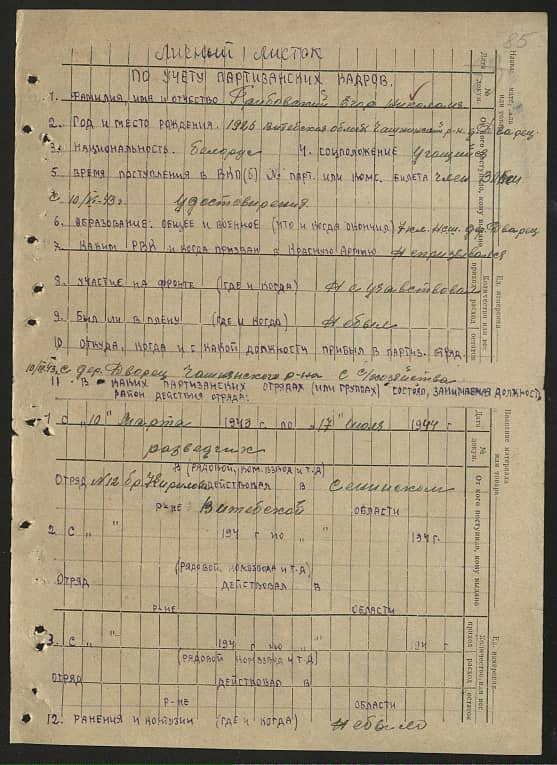 85
Личный листок
по учету партизанских кадров.
1. Фамилия, имя и отчество Егор
2. Год и место рождения. 1926 Витебская область Чашникский р-н. д. Дварец
3. Национальность. белорус 4. Соцположение учащийся
5 Время поступления в ВКП(б) № парт. или комс. билета член
с 10/ удостоверения
6. Образование: общее и военное (что и когда окончил) 7 кл. нсш. дер. Дварец
7. Каким РВК и когда призван в Красную Армию Не призывался
8. Участие на фронте (где и когда) Не участвовал
9. Был ли в плену (где и когда) Не был
10 Откуда, когда и с какой должности прибыл в партиз. отряд.
с дер. Дворец Чашникского р-на с с/хозяйства
11 В каких партизанских отрядах (или группах) состоял, занимаемая должность,
район действия отряда:
1 с "10" Марта 1943 г. по "17" Июля 1944 г
разведчик
(рядовой, ком. взвод и т.д)
Отряд №12 бр. действовал в Сенинском
р-не Витебской области
2. с " " 194 г по " " 194 г.
(рядовой, комвзвода и т.д)
Отряд действовал в
р-не области
3. с " " 194 г по " " 194 г
(рядовой комвзвод и т.д)
Отряд действовал в
р-не области
12. Ранения и контузии (где и когда) Не было
Дата
№ докум.
От кого поступило, кому выдано
Количество или вес
приход расход остаток
Ед. измерения
Название материала
или товара
Дата
№ докум.
От кого поступило, кому выдано
Количество или вес
приход расход остаток
Ед. измерения